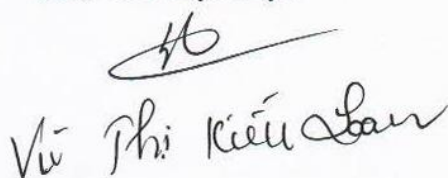 Vũ Thị Kiều Loan